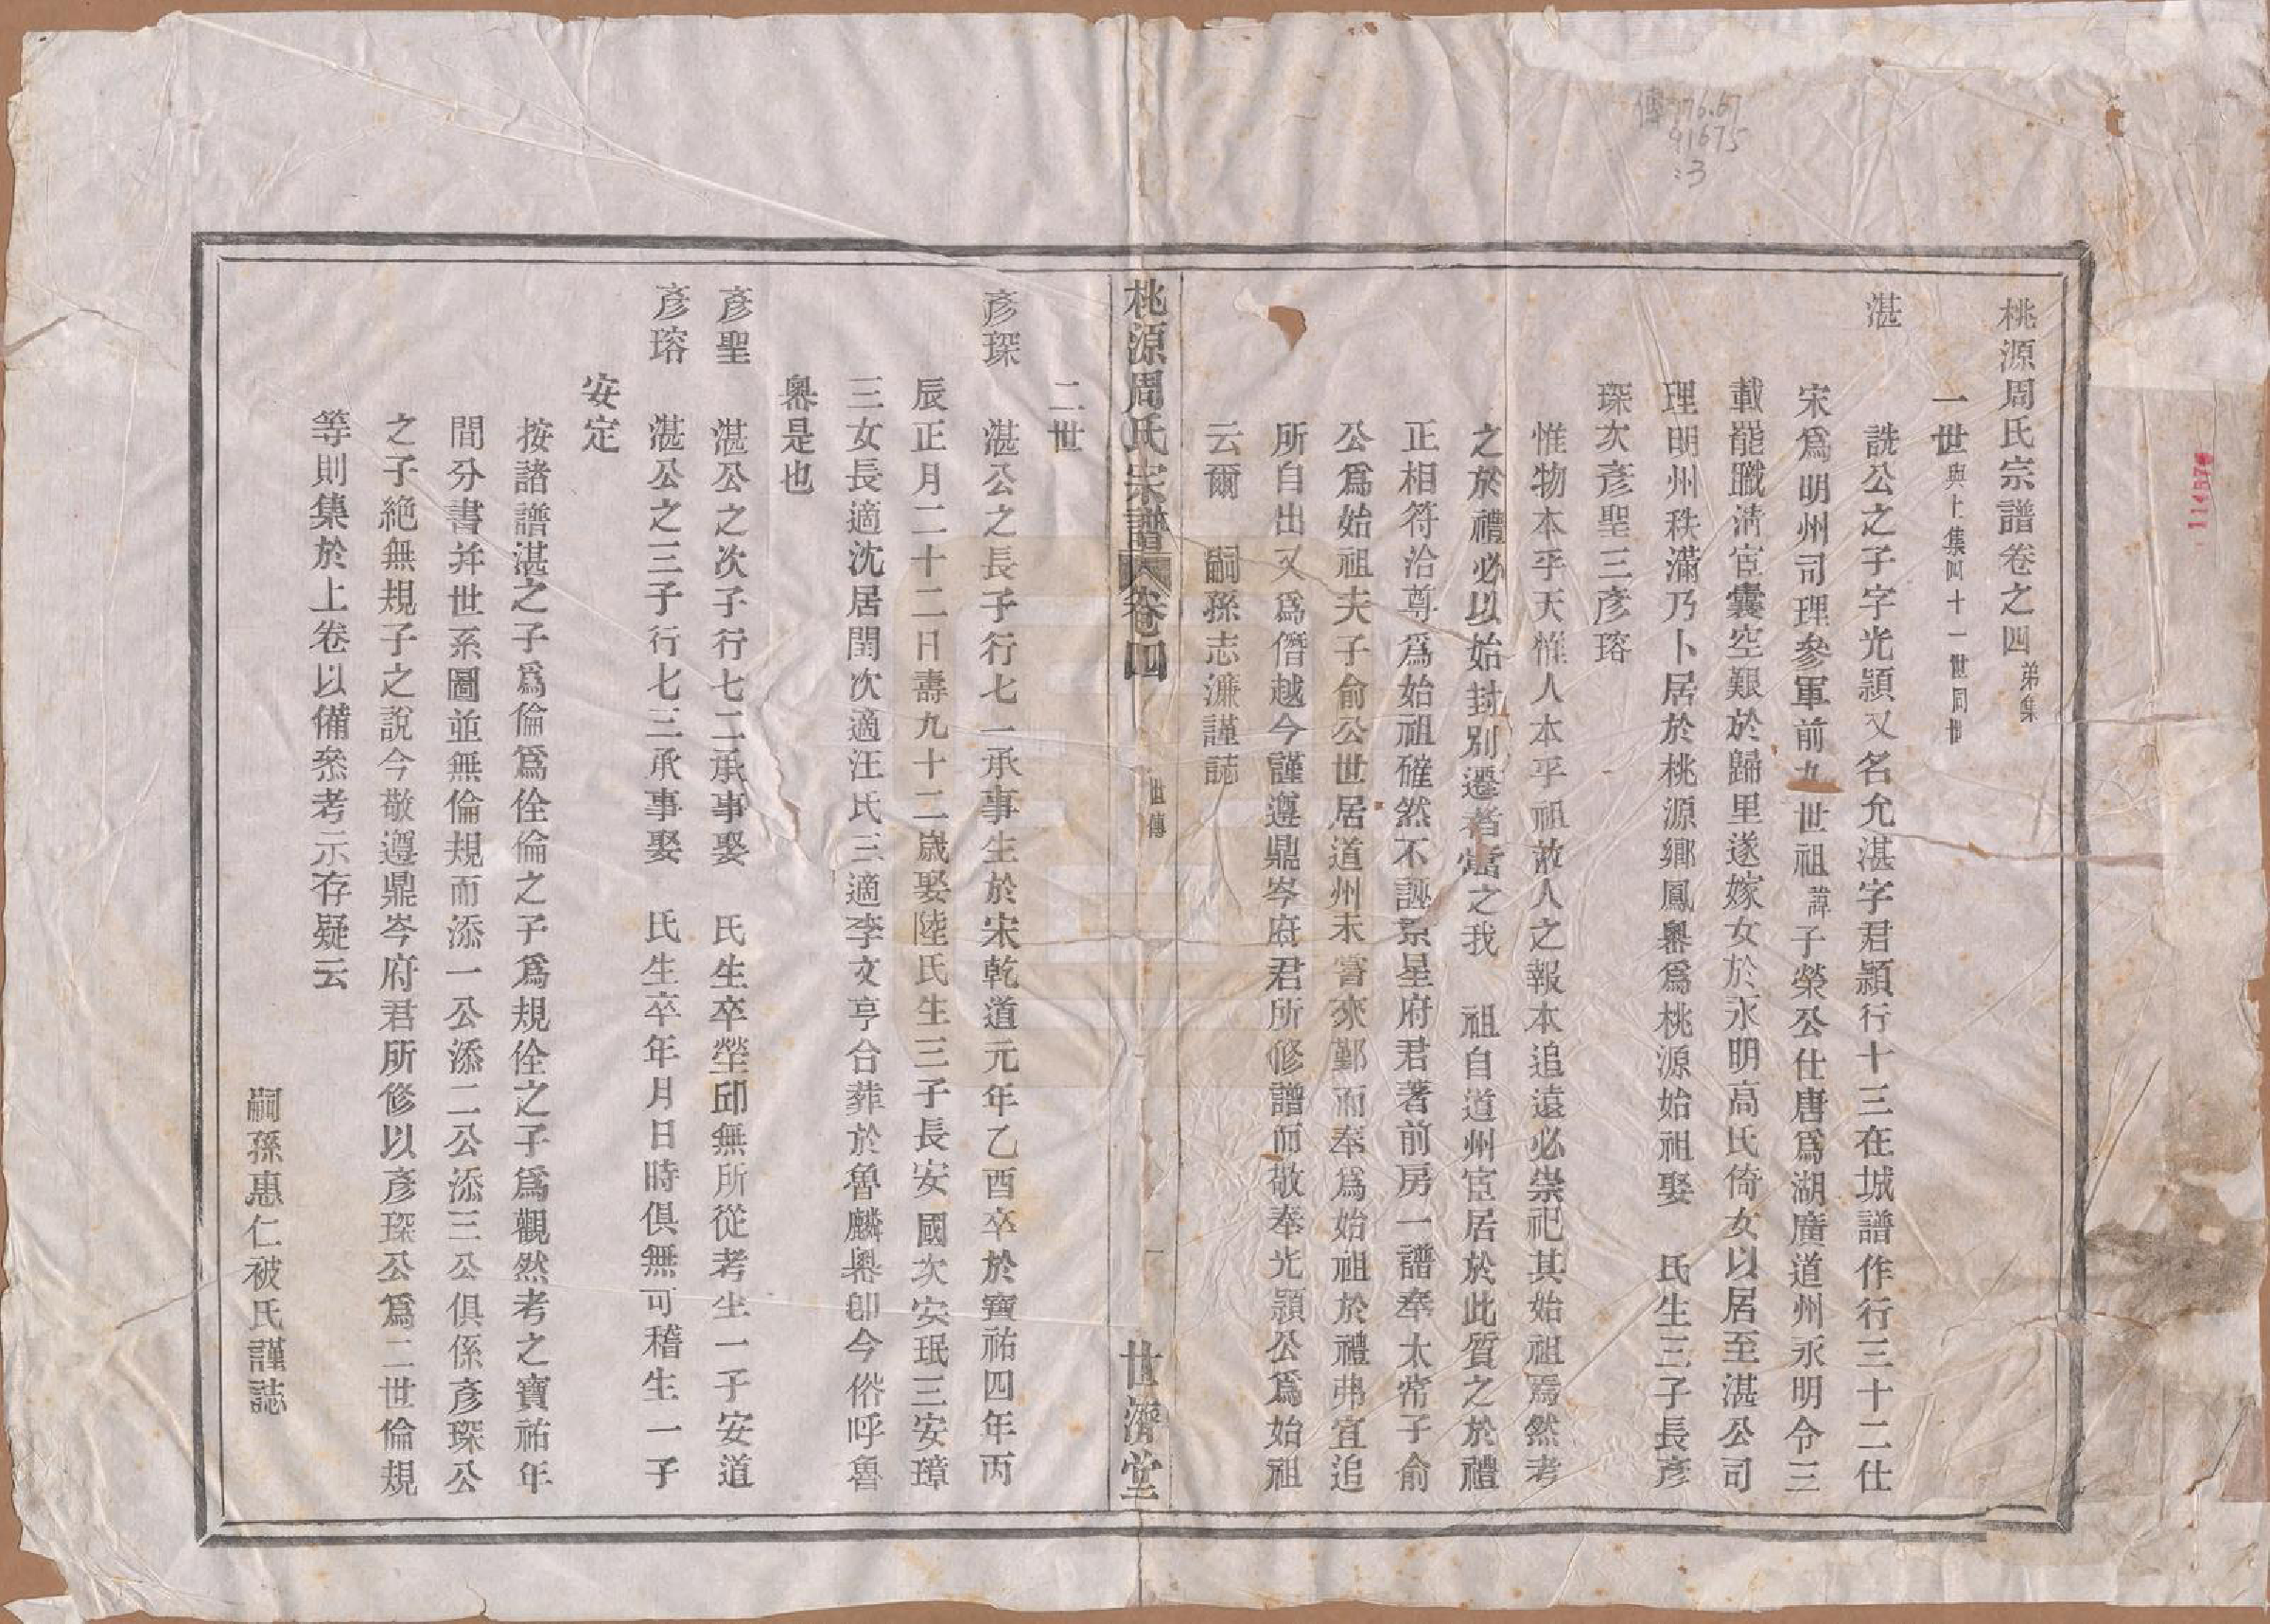 桃源周氏宗譜卷之四 弟集
一世 與上集四十一世同世
湛
詵公之子字光顥又名允湛字君顥行十三在城譜作行三十二仕
宋爲明州司理參軍前九世祖諱子榮公仕唐爲湖廣道州永明令三
載罷職淸宦囊空艱於歸里遂嫁女於永明高氏倚女以居至湛公司
理明州秩滿乃卜居於桃源鄉鳳墺爲桃源始祖娶 氏生三子長彥
琛次彥聖三彥瑢
惟物本乎天惟人本乎祖故人之報本追遠必崇祀其始祖焉然考
之於禮必以始封別遷者當之我 祖自道州宦居於此質之於禮
正相符洽尊爲始祖確然不誣景星府君著前房一譜奉太常子俞
公爲始祖夫子俞公世居道州未嘗來鄞而奉爲始祖於禮弗宜追
所自出又爲僭越今謹遵鼎岑府君所修譜而敬奉光顥公爲始祖
云爾 嗣孫志濂謹誌
桃源周氏宗譜 卷四 世傳 一 世濟堂
二世
彥琛
湛公之長子行七一承事生於宋乾道元年乙酉卒於寶祐四年丙
辰正月二十二日壽九十二歲娶陸氏生三子長安國次安珉三安璋
三女長適沈居閏次適汪氏三適李文亨合葬於魯麟墺卽今俗呼魯
墺是也
彥聖
湛公之次子行七二承事娶 氏生卒塋邱無所從考生一子安道
彥瑢
湛公之三子行七三承事娶 氏生卒年月日時俱無可稽生一子
安定
按諸譜湛之子爲倫爲佺倫之子爲規佺之子爲觀然考之寶祐年
間分書幷世系圖並無倫規而添一公添二公添三公俱係彥琛公
之子絕無規子之說今敬遵鼎岑府君所修以彥琛公爲二世倫規
等則集於上卷以備叅考示存疑云
嗣孫惠仁被氏謹誌
傳776.67
91675
:3